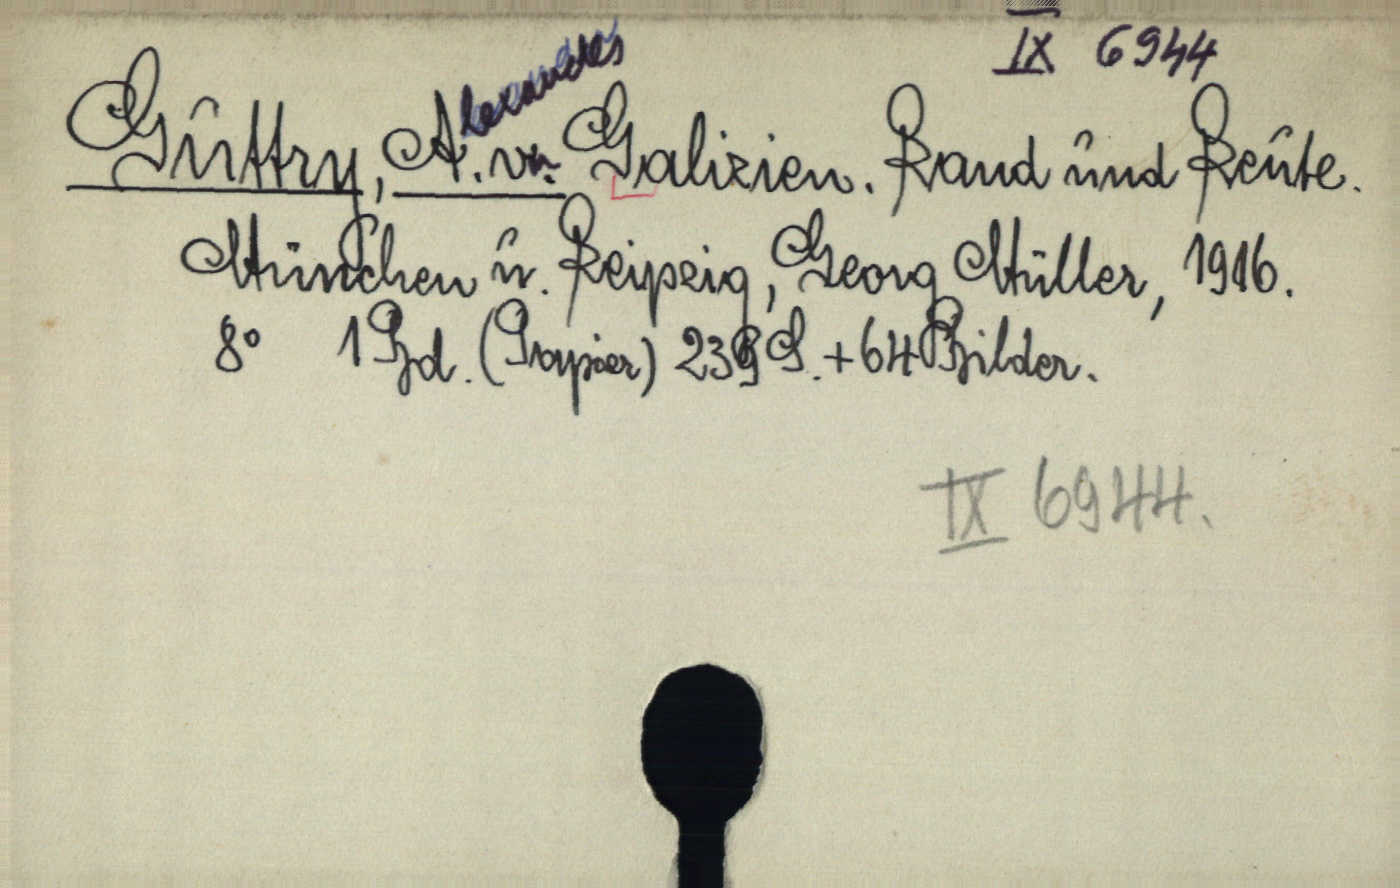 IX 6944
Guttry, Alexander v. Galizien. Land und Leute.
München u. Leipzig, Georg Müller, 1916.
8° 1 Bd. (Papier) 239 S. + 64 Bilder.
IX 6944.